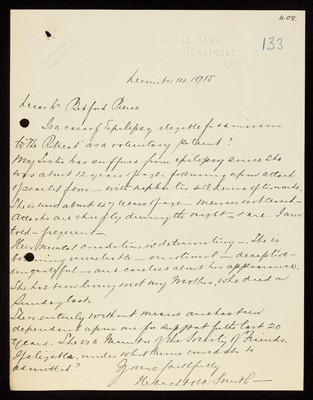 408
HOLLY BANK,
HEADINGLEY,
LEEDS.
133
December 14 1915
Dear Dr Bedford Pierce
Is a case of Epilepsy eligible for admission
to "The Retreat" as a voluntary patient?
My Sister has suffered from epilepsy since she
was about 12 years of age, following upon attack
of scarlet fever — with nephritis all
She is now about 47 years of age — menses not ceased —
Attacks are chiefly during the night, & are I am
told — frequent —
Her mental condition is deteriorating — She is
becoming — emotional — deceptive —
ungrateful — and careless about her appearance.
She has been living with my Mother, who died on
Sunday last.
She is entirely without means and has been
dependent upon me for support for the last 20
years. She is a Member of the Society of Friends.
If eligible, under what terms could she be
admitted?
Yours faithfully
Smith —